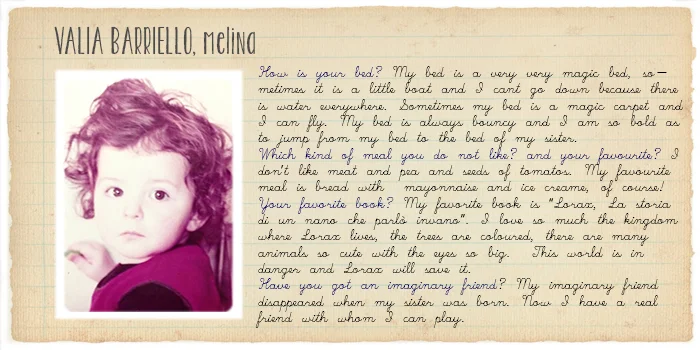 VALIA BARRIELLO, Melina
How is your bed? My bed is a very very magic bed, so-
metimes it is a little boat and I cant go down because there
is water everywhere. Sometimes my bed is a magic carpet and
I can fly. My bed is always bouncy and I am so bold as
to jump from my bed to the bed of my sister.
Which kind of meal you do not like? and your favourite? I
don't like meat and pea and seeds of tomatos. My favourite
meal is bread with mayonnaise and ice creame, of course!
Your favorite book? My favorite book is "Lorax, La storia
di un nano che parlò invano". I love so much the kingdom
where Lorax lives, the trees are coloured, there are many
animals so cute with the eyes so big. This world is in
danger and Lorax will save it.
Have you got an imaginary friend? My imaginary friend
disappeared when my sister was born. Now I have a real
friend with whom I can play.